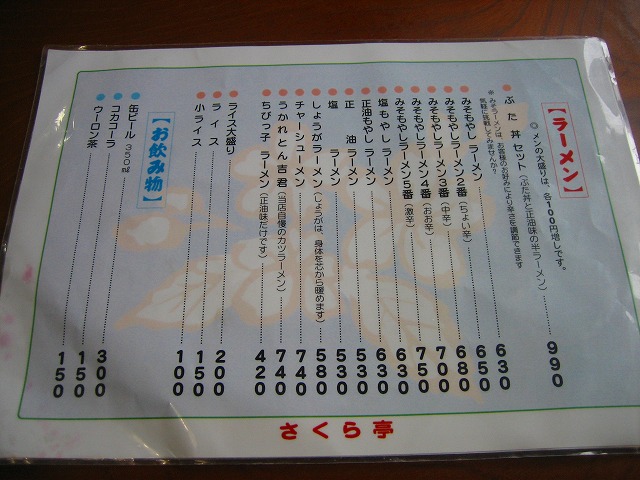 【ラーメン】
◎メンの大盛りは、各100円増しです。
●ぶた丼セット(ぶた丼と正油味の半ラーメン)……990
※みそラーメンは、お客様のお好みにより辛さを調節できます
気軽に挑戦してみませんか?
●みそもやし ラーメン……630
●みそもやしラーメン2番(ちょい辛)……650
●みそもやしラーメン3番(中辛)……680
●みそもやしラーメン4番(おお辛)……700
●みそもやしラーメン5番(激辛)……750
●塩もやし ラーメン……630
●正油もやしラーメン……630
●正 油 ラーメン……530
●塩 ラーメン……530
●しょうがラーメン(しょうがは、身体を芯から暖めます)……580
●チャーシューメン……740
●うかれとん吉君(当店自慢のカツラーメン)……740
●ちびっ子 ラーメン(正油味だけです)……420
●ライス大盛り……200
●ライス……150
●小ライス……100
【お飲み物】
●缶ビール 350㎖……300
●コカコーラ……150
●ウーロン茶……150
さくら亭